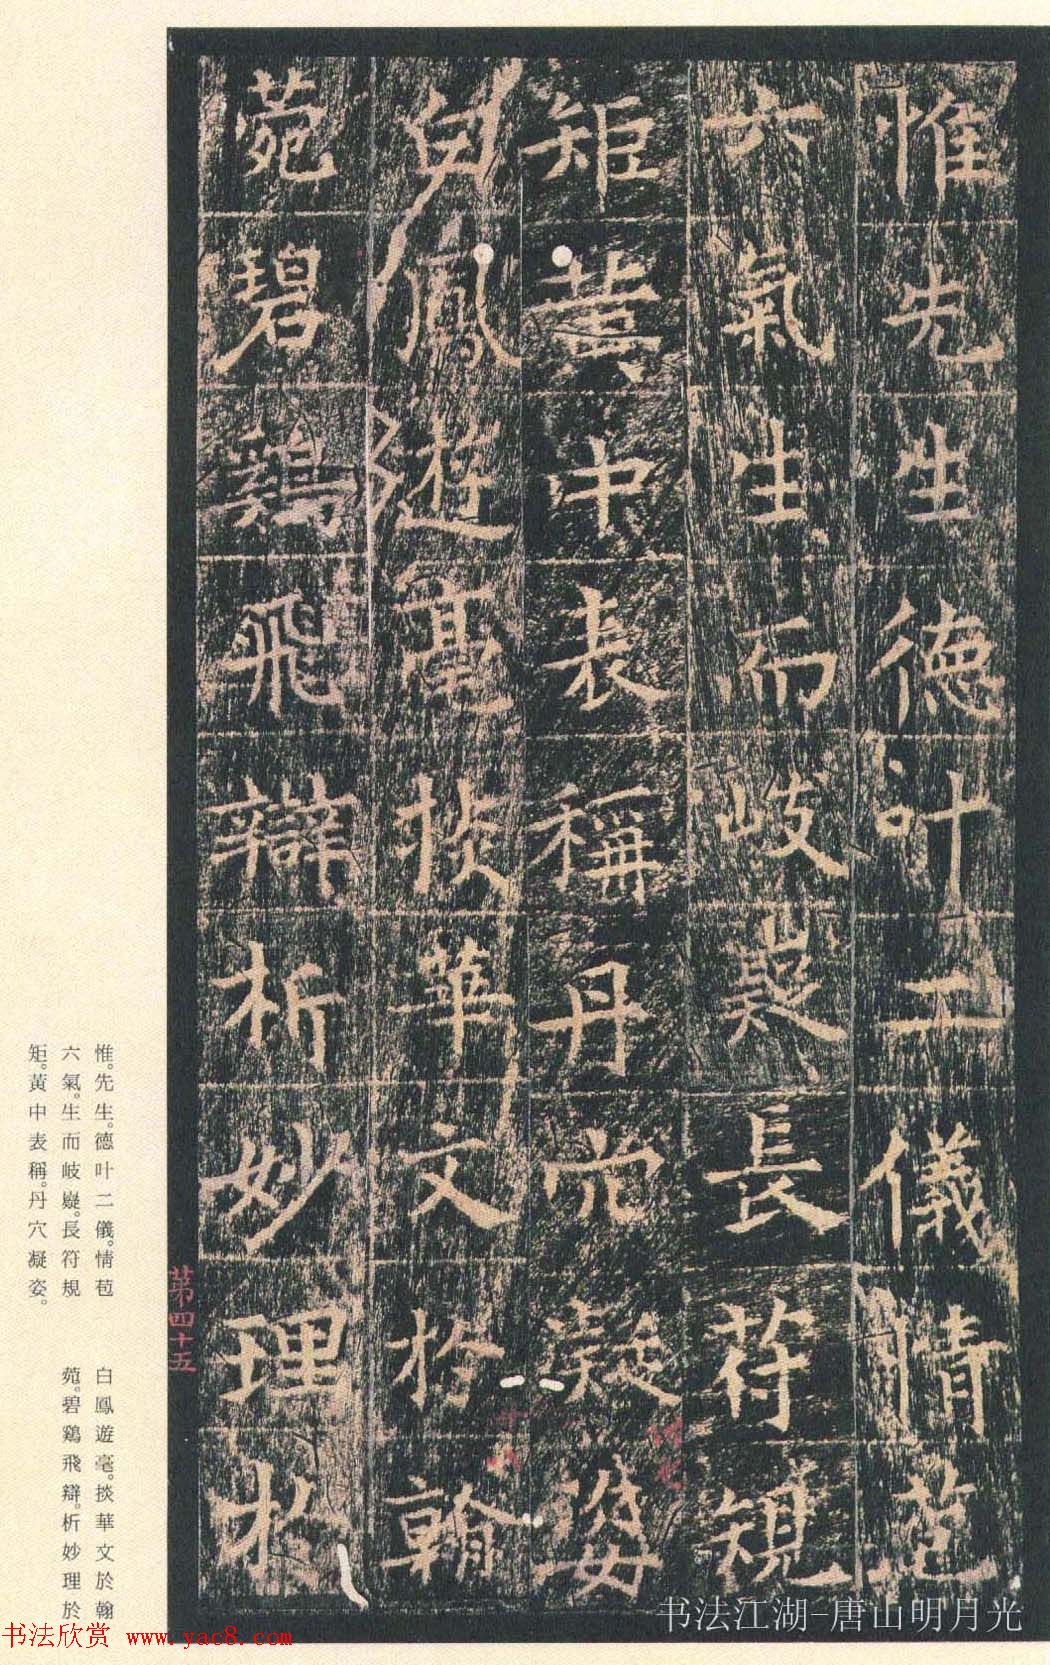 惟先生德叶二儀情苞
六氣生而岐嶷長符規
矩黃中表稱丹穴凝姿
白鳳遊毫掞華文於翰
菀碧鷄飛辯析妙理於
第四十五
惟。先生。德叶二儀。情苞
六氣。生而岐嶷。長符規
矩。黃中表稱。丹穴凝姿。
白鳳遊毫。掞華文於翰
菀。碧鷄飛辯。析妙理於
书法江湖-唐山明月光
书法欣赏 www.yac8.com